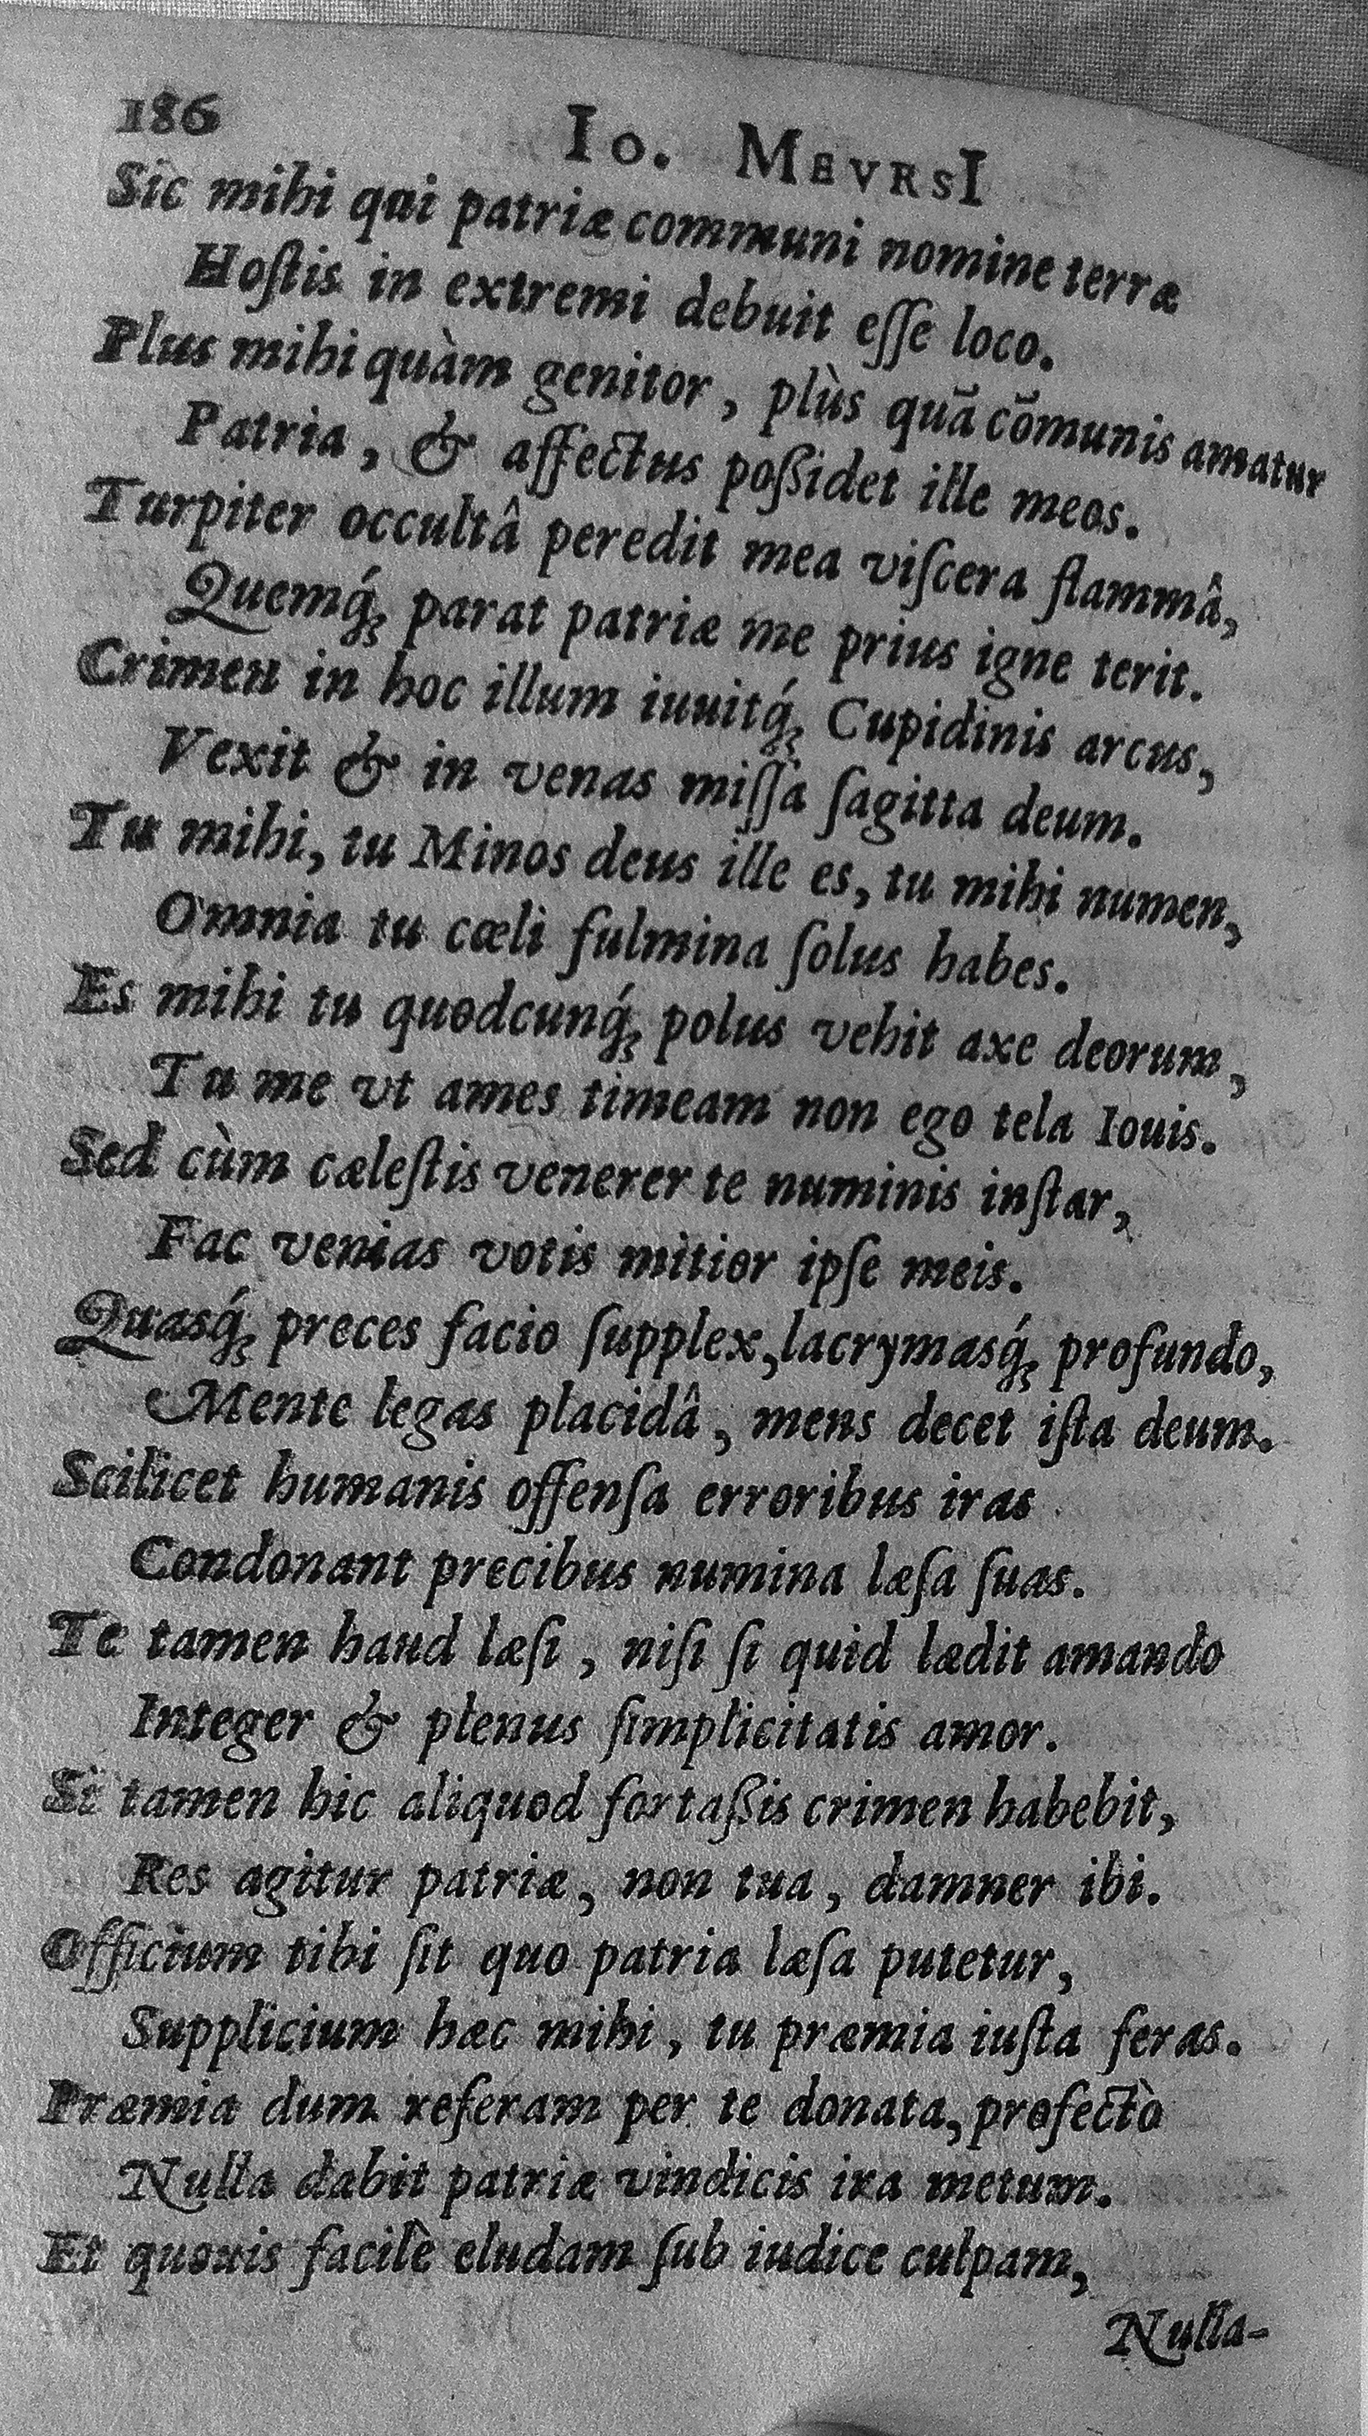 186
Io. MEVRSI
Sic mihi qui patriæ communi nomine terræ
Hoſtis in extremi debuit eſſe loco.
Plus mihi quàm genitor, plùs quã cõmunis amatur
Patria, & affectus poßidet ille meos.
Turpiter occultâ peredit mea viſcera flammâ,
Quemq́ꝫ parat patriæ me prius igne terit.
Crimen in hoc illum iuuitq́ꝫ Cupidinis arcus,
Vexit & in venas miſſa ſagitta deum.
Tu mihi, tu Minos deus ille es, tu mihi numen,
Omnia tu cœli fulmina ſolus habes.
Es mihi tu quodcunq́ꝫ polus vehit axe deorum,
Tu me vt ames timeam non ego tela Iouis.
Sed cùm cæleſtis venerer te numinis inſtar,
Fac venias votis mitior ipſe meis.
Quasq́ꝫ preces facio ſupplex, lacrymasq́ꝫ profundo,
Mente legas placidâ, mens decet iſta deum.
Scilicet humanis offenſa erroribus iras
Condonant precibus numina læſa ſuas.
Te tamen haud læſi, niſi ſi quid lædit amando
Integer & plenus ſimplicitatis amor.
Si tamen hic aliquod fortaßis crimen habebit,
Res agitur patriæ, non tua, damner ibi.
Officium tibi ſit quo patria læſa putetur,
Supplicium hæc mihi, tu præmia iuſta feras.
Præmia dum referam per te donata, profectò
Nulla dabit patriæ vindicis ira metum.
Et quouis facilè eludam ſub iudice culpam,
Nulla-